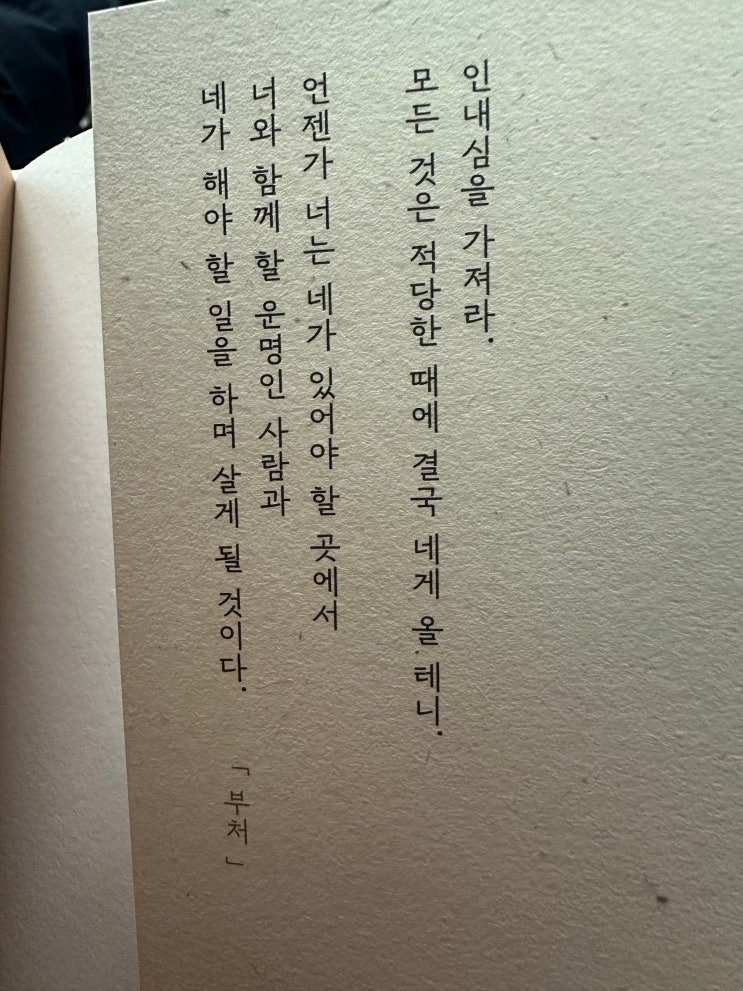 인내심을 가져라.
모든 것은 적당한 때에 결국 네게 올 테니.
언젠가 너는 네가 있어야 할 곳에서
너와 함께 할 운명인 사람과
네가 해야 할 일을 하며 살게 될 것이다.
「부처」